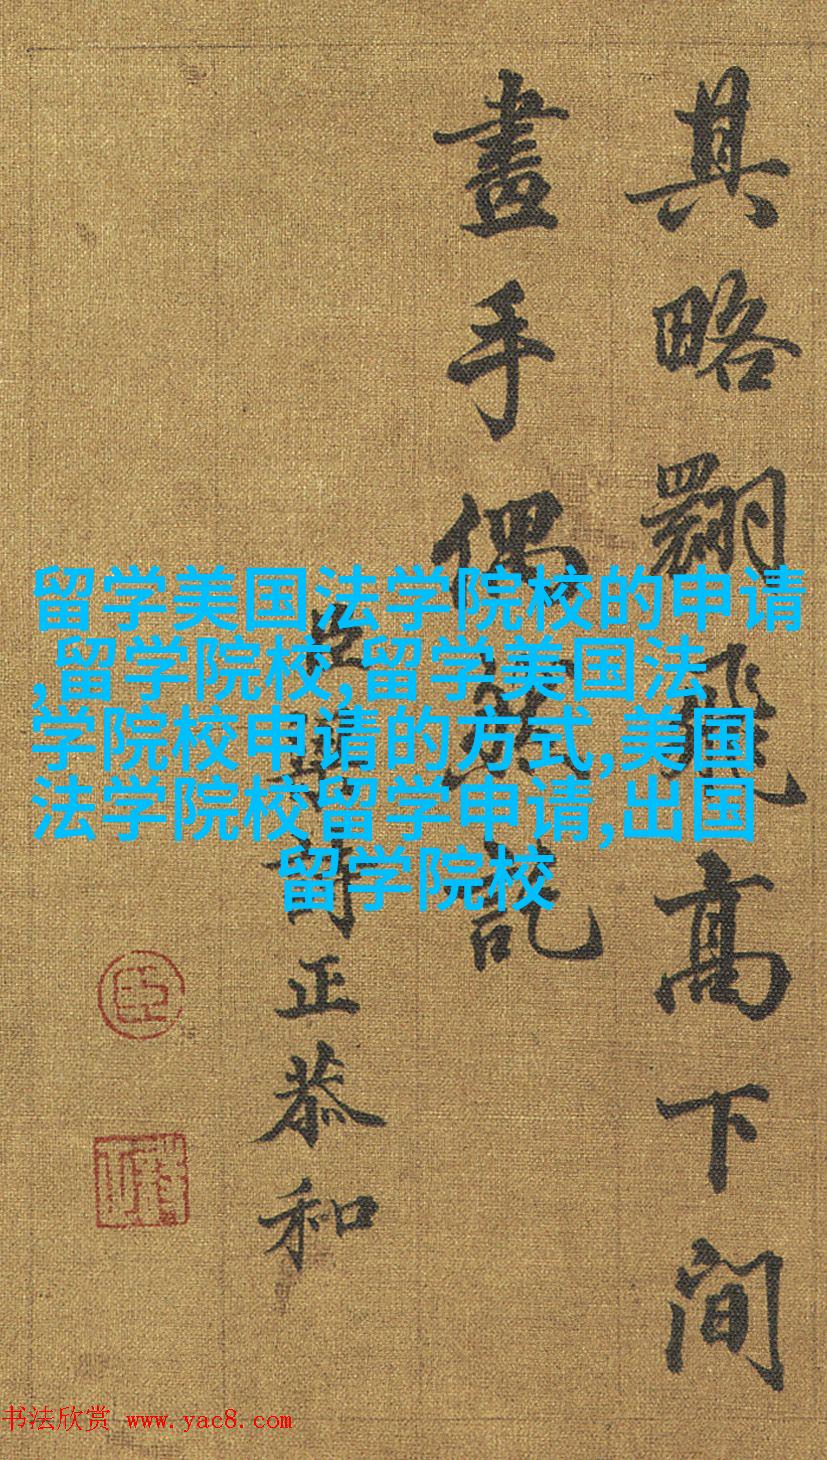 其略翾飛高下間
畫手偶然訖
臣詩正恭和
臣
留学美国法学院校的申请
,留学院校,留学美国法
学院校申请的方式,美国
法学院校留学申请,出国
留学院校
书法欣赏 www.yac8.com